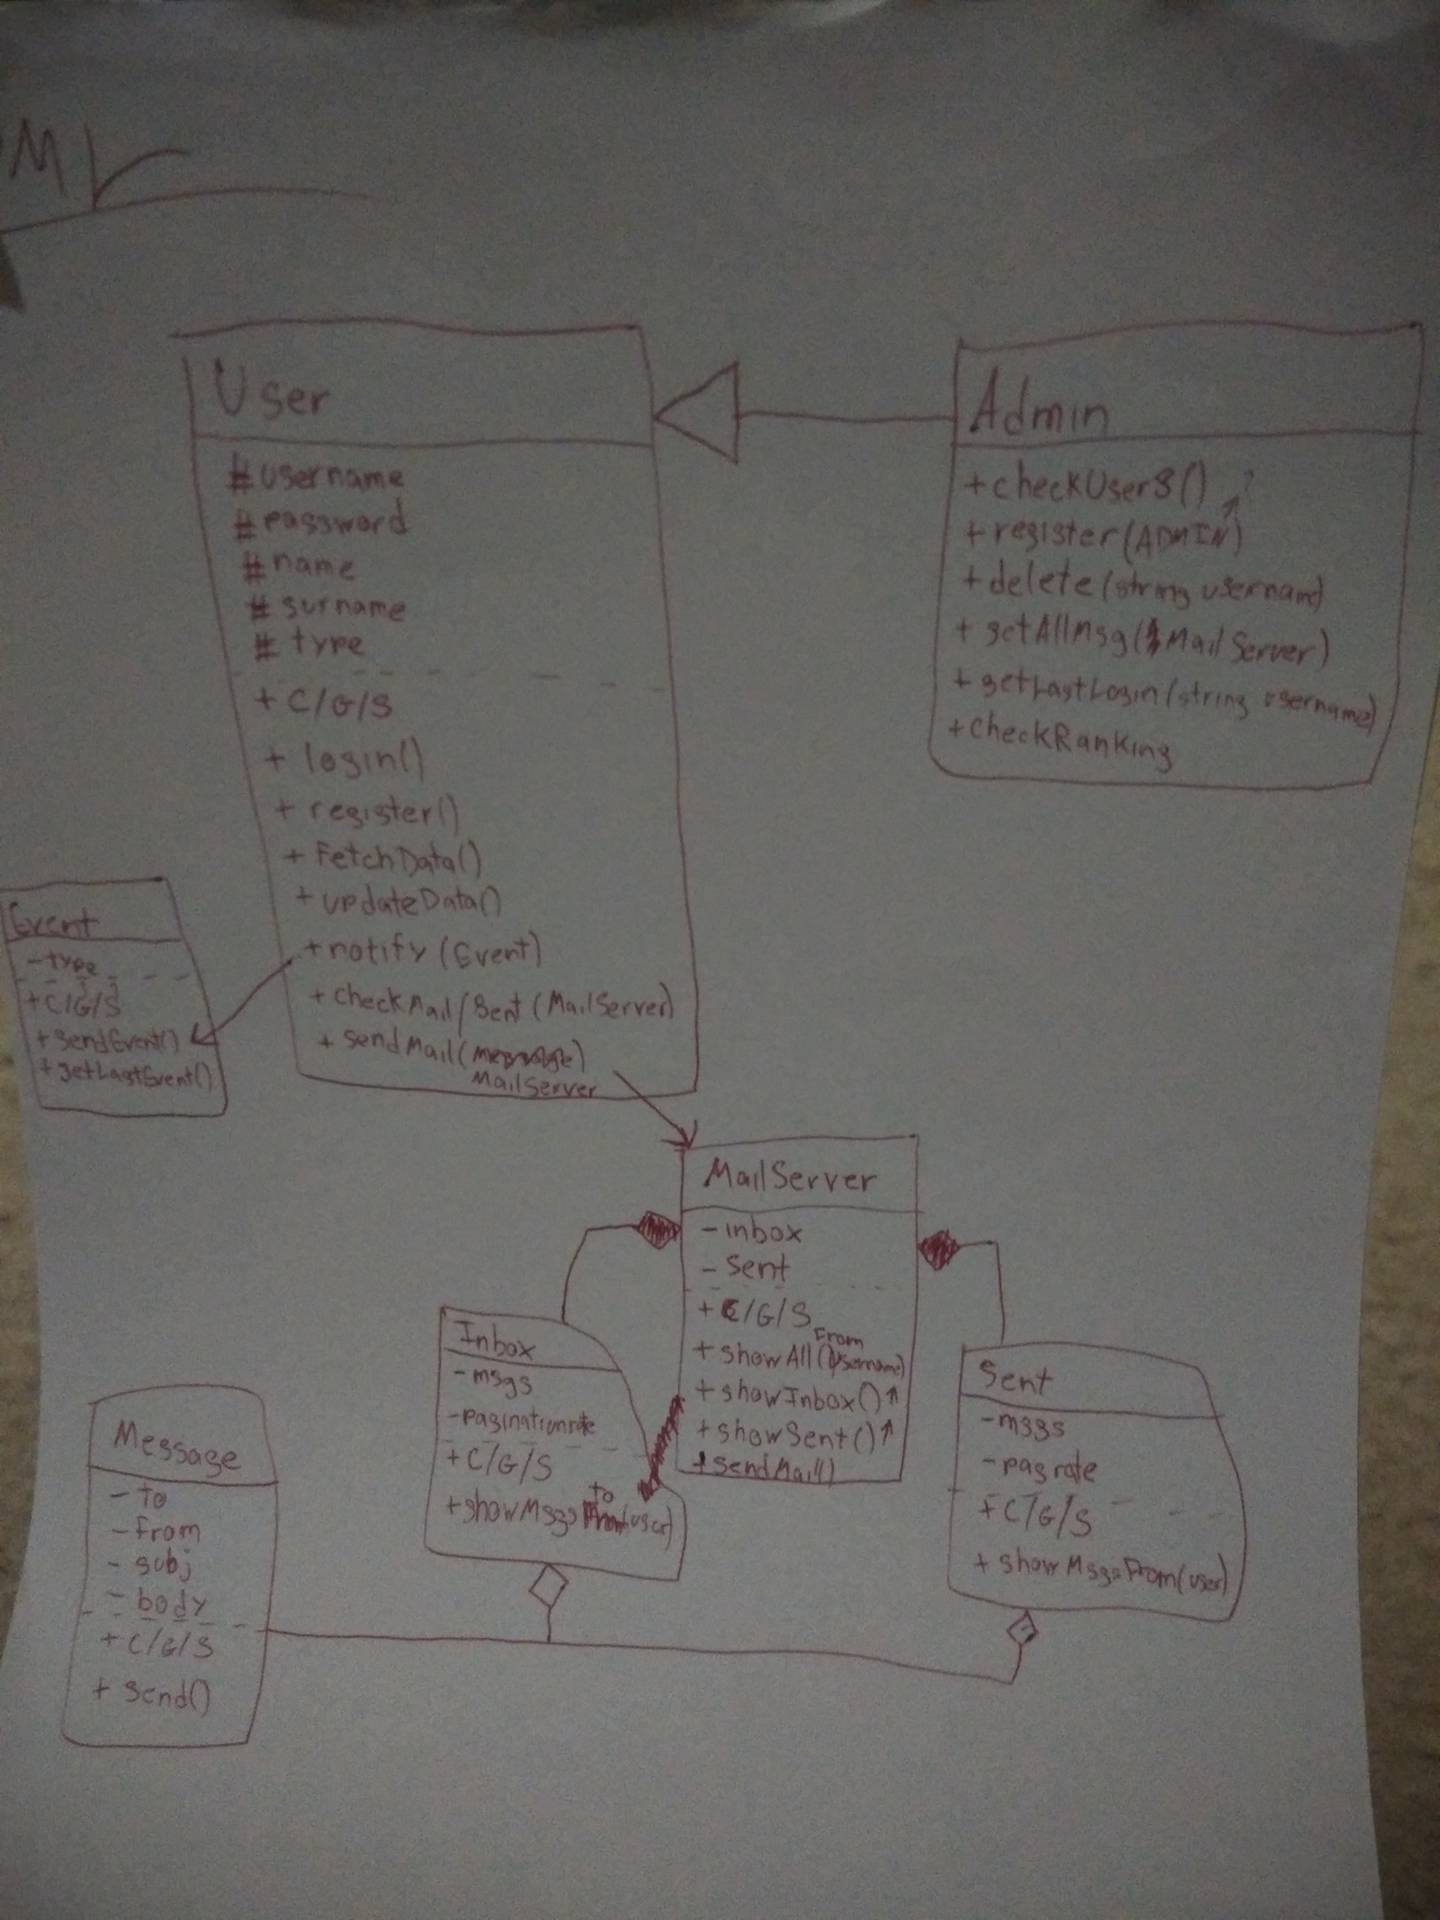 ML
User
#username
#password
#name
#surname
#type
+ C/G/S
+ login()
+ register()
+ FetchData()
+updateData()
+notify (Event)
+ checkMail/Sent (MailServer)
+ sendMail(
MailServer
Admin
+checkUsers()
+register(ADMIN)
+delete(string username)
+ getAllMsg(MailServer)
+ getLastLogin(string username)
+checkRanking
Event
-type
+C/G/S
+sendEvent()
+getLastEvent()
MailServer
-inbox
- Sent
+ C/G/S
From
+ showAll(Username)
+showInbox()
+showSent()
+sendMail()
Inbox
-msgs
-paginationrate
+C/G/S
to
+showMsgs (user)
Sent
-msgs
-pagrate
+C/G/S
+ showMsgsFrom(user)
Message
- To
- From
- subj
- body
+ C/G/S
+ send()